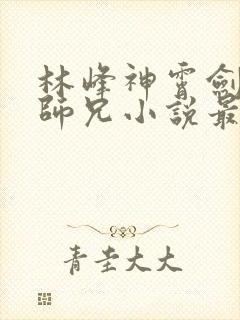 林峰神霄劍
師兄小說最
青圭大大